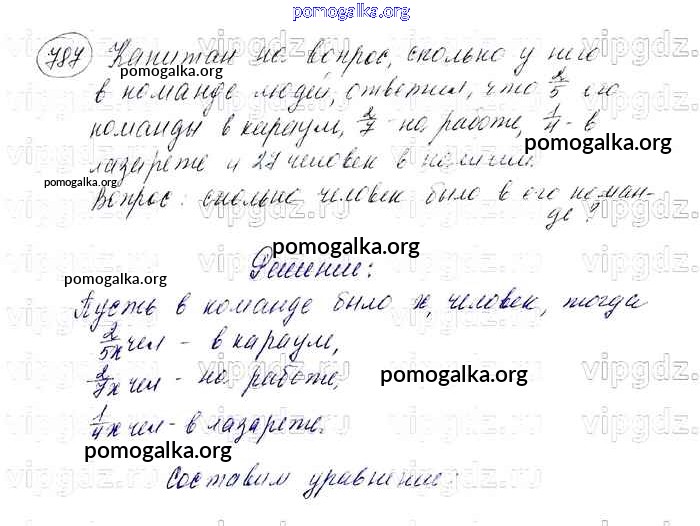 pomogalka.org
787 Капитан на вопрос, сколько у него
pomogalka.org
в команде людей, ответил, что 2/5 его
команды в карауле, 2/7 - на работе, 1/4 - в
pomogalka.org
лазарете и 27 человек в наличии.
pomogalka.org
Вопрос: сколько человек было в его коман-
де?
pomogalka.org
Решение:
pomogalka.org
Пусть в команде было x, человек, тогда
2/5x чел - в карауле,
2/7x чел - на работе,
pomogalka.org
1/4x чел - в лазарете.
pomogalka.org
Составим уравнение:
vipgdz.ru